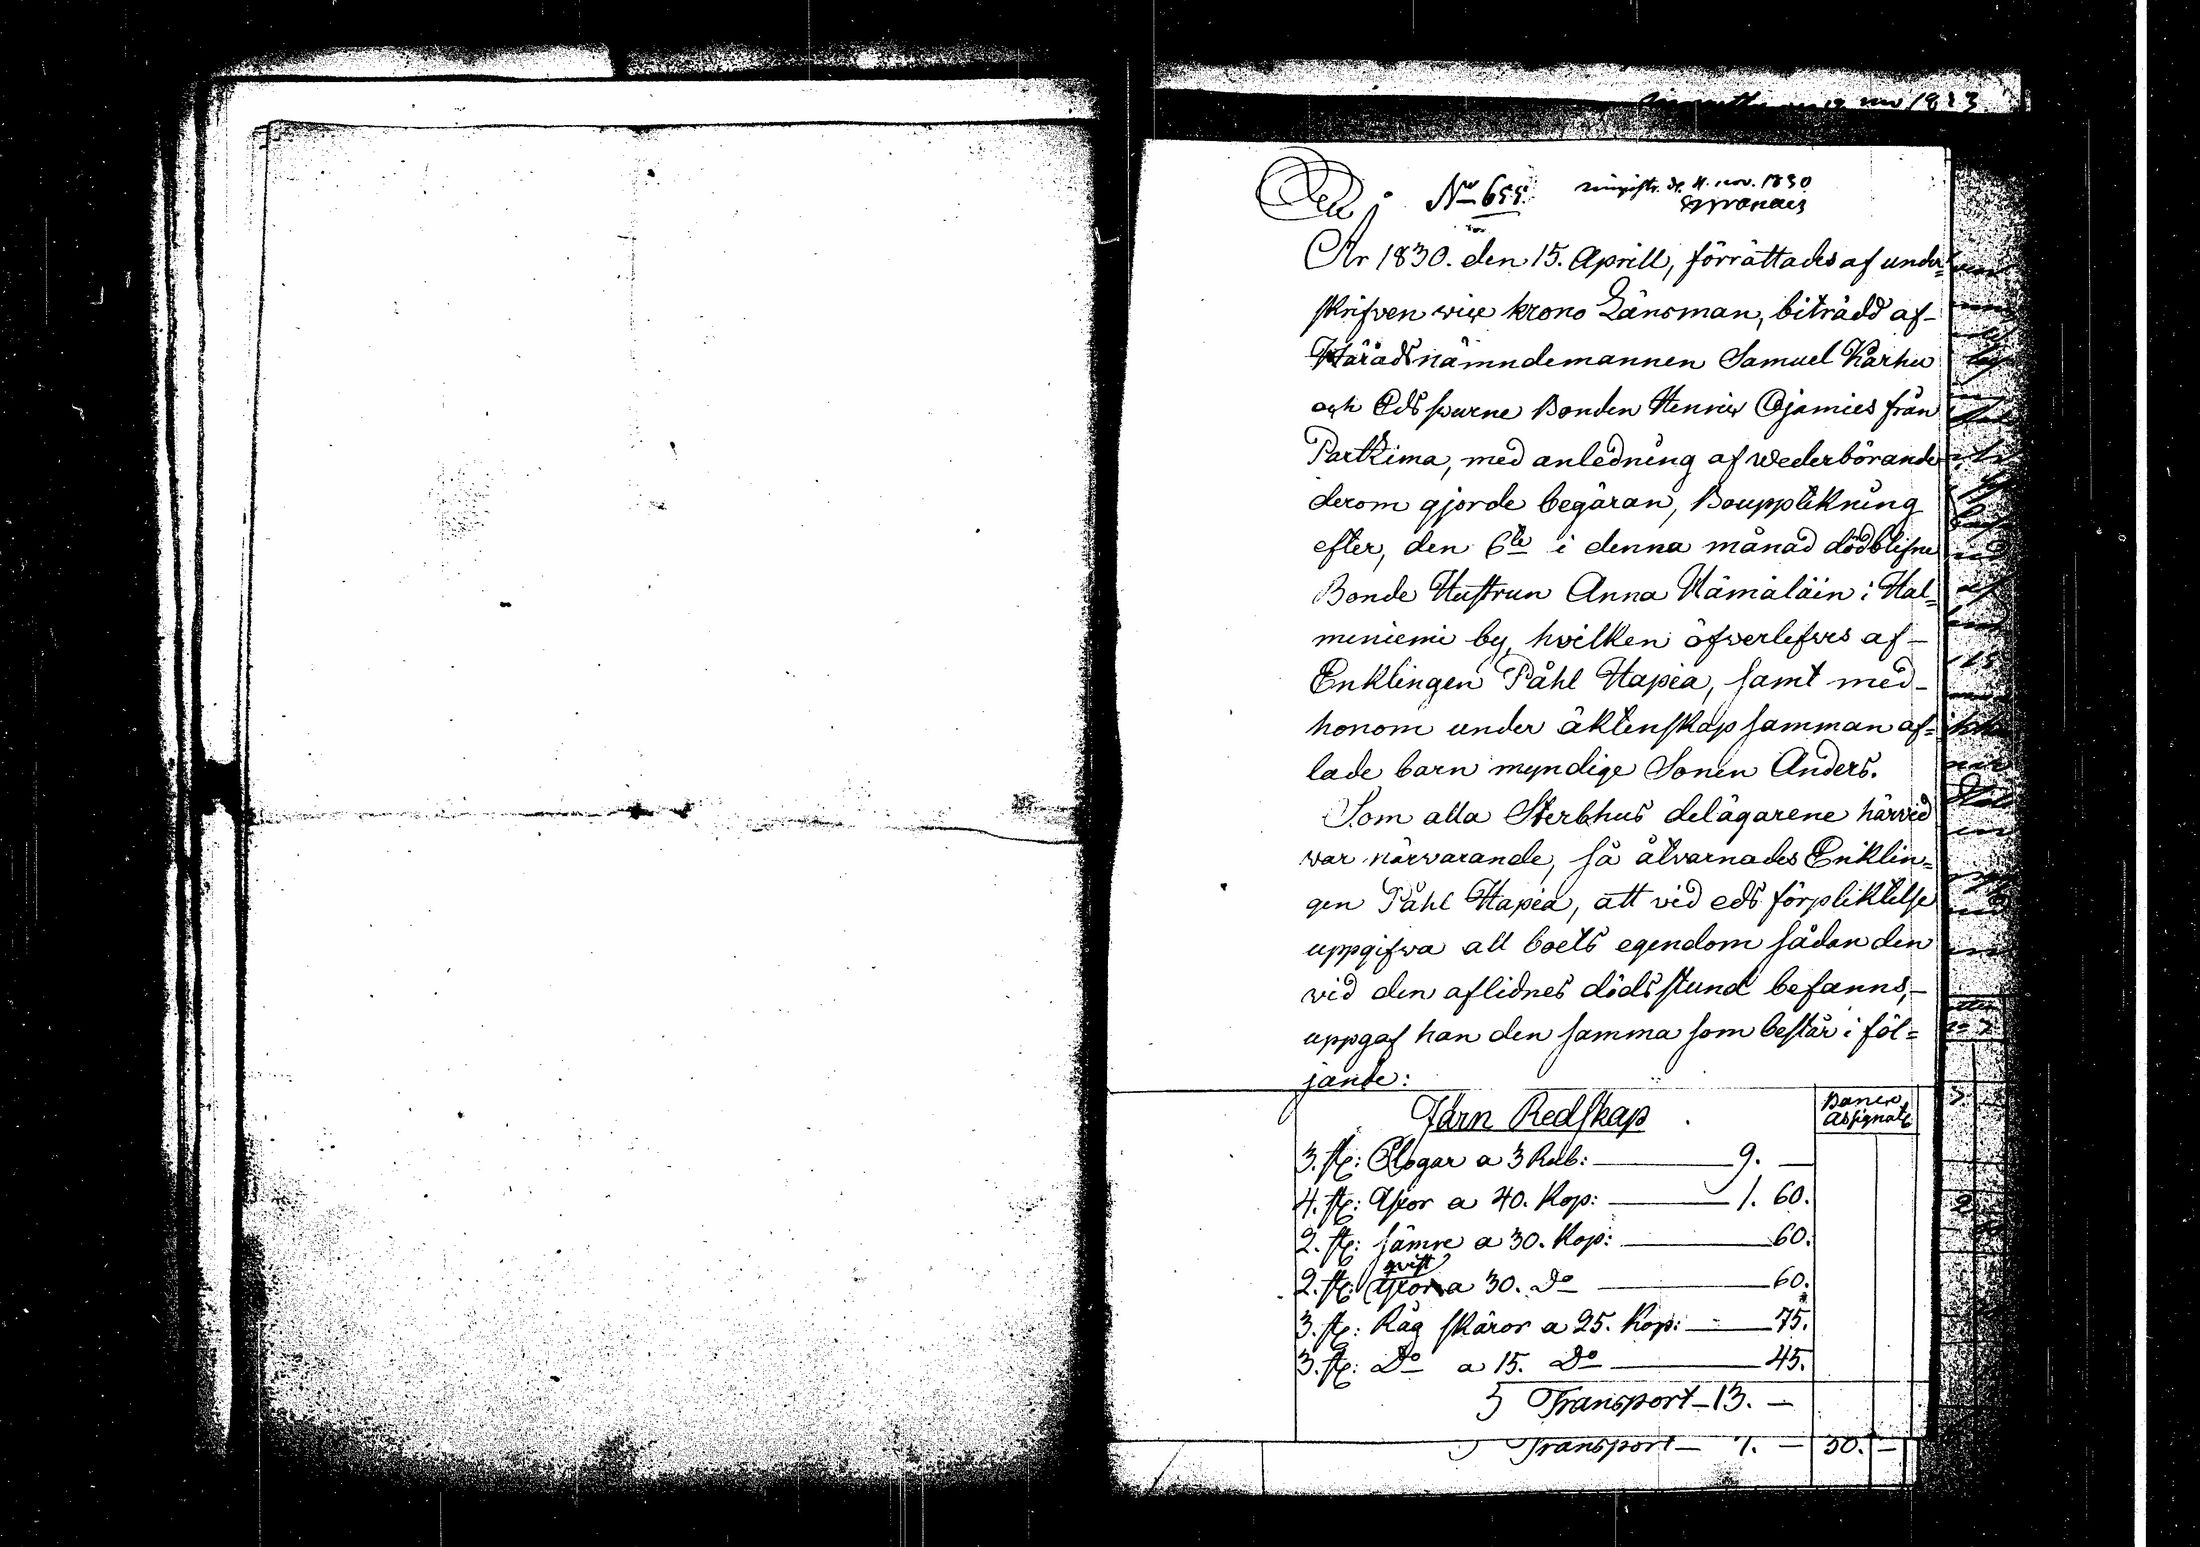 1823
No 655.
d. 4. nov. 1830
År 1830. den 15. Aprill, förrättades af under=
skrifven vice krono Länsman, biträdd af-
Häradsnämndemannen Samuel Karhu
och Edsvurne Bonden Henric Ojamies från
Partkima, med anledning af wederbörande
derom gjorde begäran, Bouppteckning
efter, den 6te i denna månad dödblifne
Bonde Hustrun Anna Hämäläin i Hal=
miniemi by, hvilken öfverlefves af-
Enklingen Påhl Hapea, samt med-
honom under äktenskap samman af=
lade barn myndige Sonen Anders.
Som alla Sterbhus delägarene härvid
var närvarande, så åtvarnades Enklin=
gen Påhl Hapea, att vid eds förpliktelse
uppgifva all boets egendom sådan den
vid den aflidnes dödsstund befanns,-
uppgaf han den samma som består i föl=
jande:
Järn Redskap
Banco
Assignat
3. st: Plogar a 3 Rub: 9. —
4. st: Yxor a 40. Kop: 1. 60.
2. st: sämre a 30. Kop: 60.
qvist
2. st: a 30. Do 60.
3. st: Råg skäror a 25. Kop: 75.
3. st: Do a 15. Do 45.
Transport — 13. —
Transport — 7. — 50. —